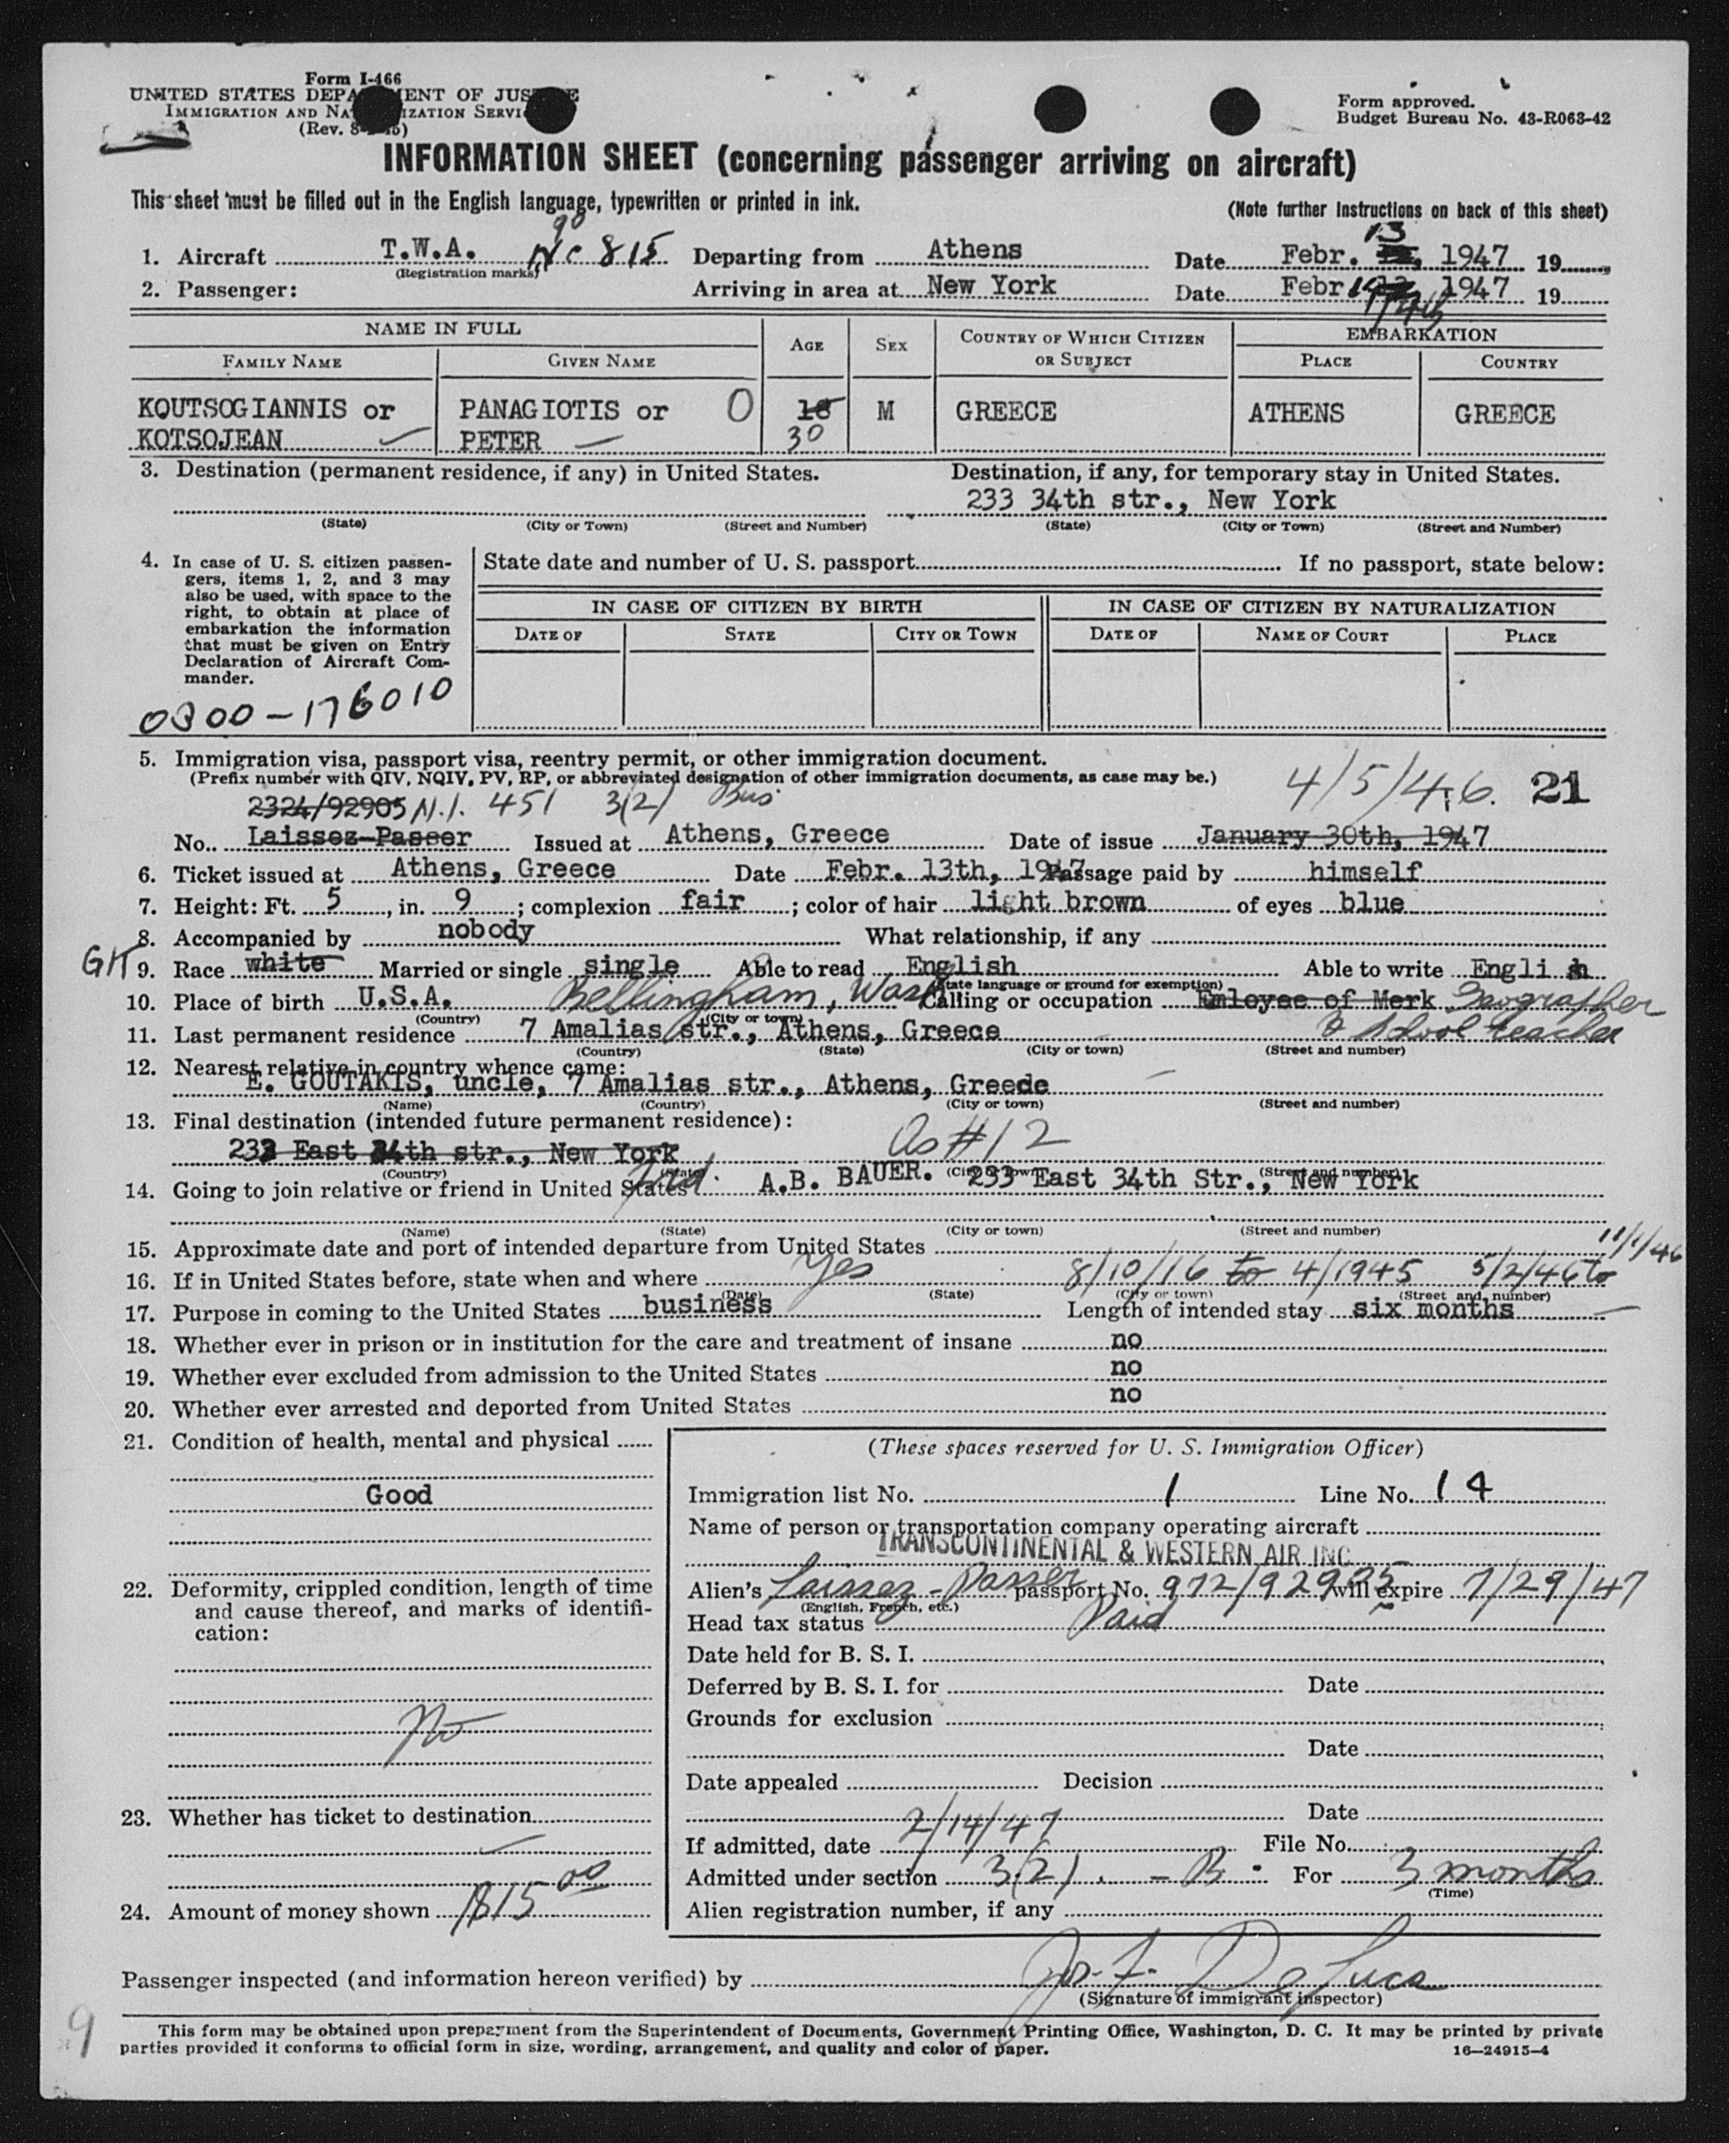 Form I-466
UNITED STATES DEPARTMENT OF JUSTICE
IMMIGRATION AND NATURALIZATION SERVICE
(Rev. 8-1-45)
Form approved.
Budget Bureau No. 43-R063-42
INFORMATION SHEET (concerning passenger arriving on aircraft)
This sheet must be filled out in the English language, typewritten or printed in ink.
(Note further instructions on back of this sheet)
90 13
1. Aircraft T.W.A. NC 815 Departing from Athens Date Febr. 1947 19
(Registration marks)
2. Passenger: Arriving in area at New York Date Febr 1947 19
14th
NAME IN FULL AGE SEX COUNTRY OF WHICH CITIZEN OR SUBJECT EMBARKATION
FAMILY NAME GIVEN NAME PLACE COUNTRY
KOUTSOGIANNIS or PANAGIOTIS or O 18 M GREECE ATHENS GREECE
KOTSOJEAN PETER 30
3. Destination (permanent residence, if any) in United States. Destination, if any, for temporary stay in United States.
233 34th str., New York
(State) (City or Town) (Street and Number) (State) (City or Town) (Street and Number)
4. In case of U. S. citizen passen-
gers, items 1, 2, and 3 may
also be used, with space to the
right, to obtain at place of
embarkation the information
that must be given on Entry
Declaration of Aircraft Com-
mander.
0300-176010
State date and number of U. S. passport If no passport, state below:
IN CASE OF CITIZEN BY BIRTH IN CASE OF CITIZEN BY NATURALIZATION
DATE OF STATE CITY OR TOWN DATE OF NAME OF COURT PLACE
5. Immigration visa, passport visa, reentry permit, or other immigration document.
(Prefix number with QIV, NQIV, PV, RP, or abbreviated designation of other immigration documents, as case may be.)
4/5/46. 21
2324/92905 N.I. 451 3(2) Bus
No. Laissez-Passer Issued at Athens, Greece Date of issue January 30th, 1947
6. Ticket issued at Athens, Greece Date Febr. 13th, 1947 Passage paid by himself
7. Height: Ft. 5, in. 9; complexion fair; color of hair light brown of eyes blue
8. Accompanied by nobody What relationship, if any
GK 9. Race white Married or single single Able to read English Able to write English
(State language or ground for exemption)
10. Place of birth U.S.A. Bellingham, Wash Calling or occupation Emloyee of Merk Geographer
(Country) (City or town) & School teacher
11. Last permanent residence 7 Amalias str., Athens, Greece
(Country) (State) (City or town) (Street and number)
12. Nearest relative in country whence came:
E. GOUTAKIS, uncle, 7 Amalias str., Athens, Greede
(Name) (Country) (City or town) (Street and number)
13. Final destination (intended future permanent residence):
233 East 34th str., New York As #12
(Country) (State) (City or town) (Street and number)
14. Going to join relative or friend in United States Frd. A.B. BAUER. 233 East 34th Str., New York
(Name) (State) (City or town) (Street and number)
15. Approximate date and port of intended departure from United States
11/1/46
16. If in United States before, state when and where Yes 8/10/16 to 4/1945 5/2/46 to
(Date) (State) (City or town) (Street and number)
17. Purpose in coming to the United States business Length of intended stay six months
18. Whether ever in prison or in institution for the care and treatment of insane no
19. Whether ever excluded from admission to the United States no
20. Whether ever arrested and deported from United States no
21. Condition of health, mental and physical
Good
22. Deformity, crippled condition, length of time
and cause thereof, and marks of identifi-
cation:
No
23. Whether has ticket to destination
24. Amount of money shown $15 00
(These spaces reserved for U. S. Immigration Officer)
Immigration list No. 1 Line No. 14
Name of person or transportation company operating aircraft
TRANSCONTINENTAL & WESTERN AIR INC
Alien's Laissez-Passer passport No. 972/92905 will expire 7/29/47
(English, French, etc.)
Head tax status Paid
Date held for B. S. I.
Deferred by B. S. I. for Date
Grounds for exclusion
Date
Date appealed Decision
Date
If admitted, date 2/14/47 File No.
Admitted under section 3(2) - B For 3 months
(Time)
Alien registration number, if any
Passenger inspected (and information hereon verified) by Jos. F. De Luca
(Signature of immigrant inspector)
9
This form may be obtained upon prepayment from the Superintendent of Documents, Government Printing Office, Washington, D. C. It may be printed by private
parties provided it conforms to official form in size, wording, arrangement, and quality and color of paper.
16—24915-4